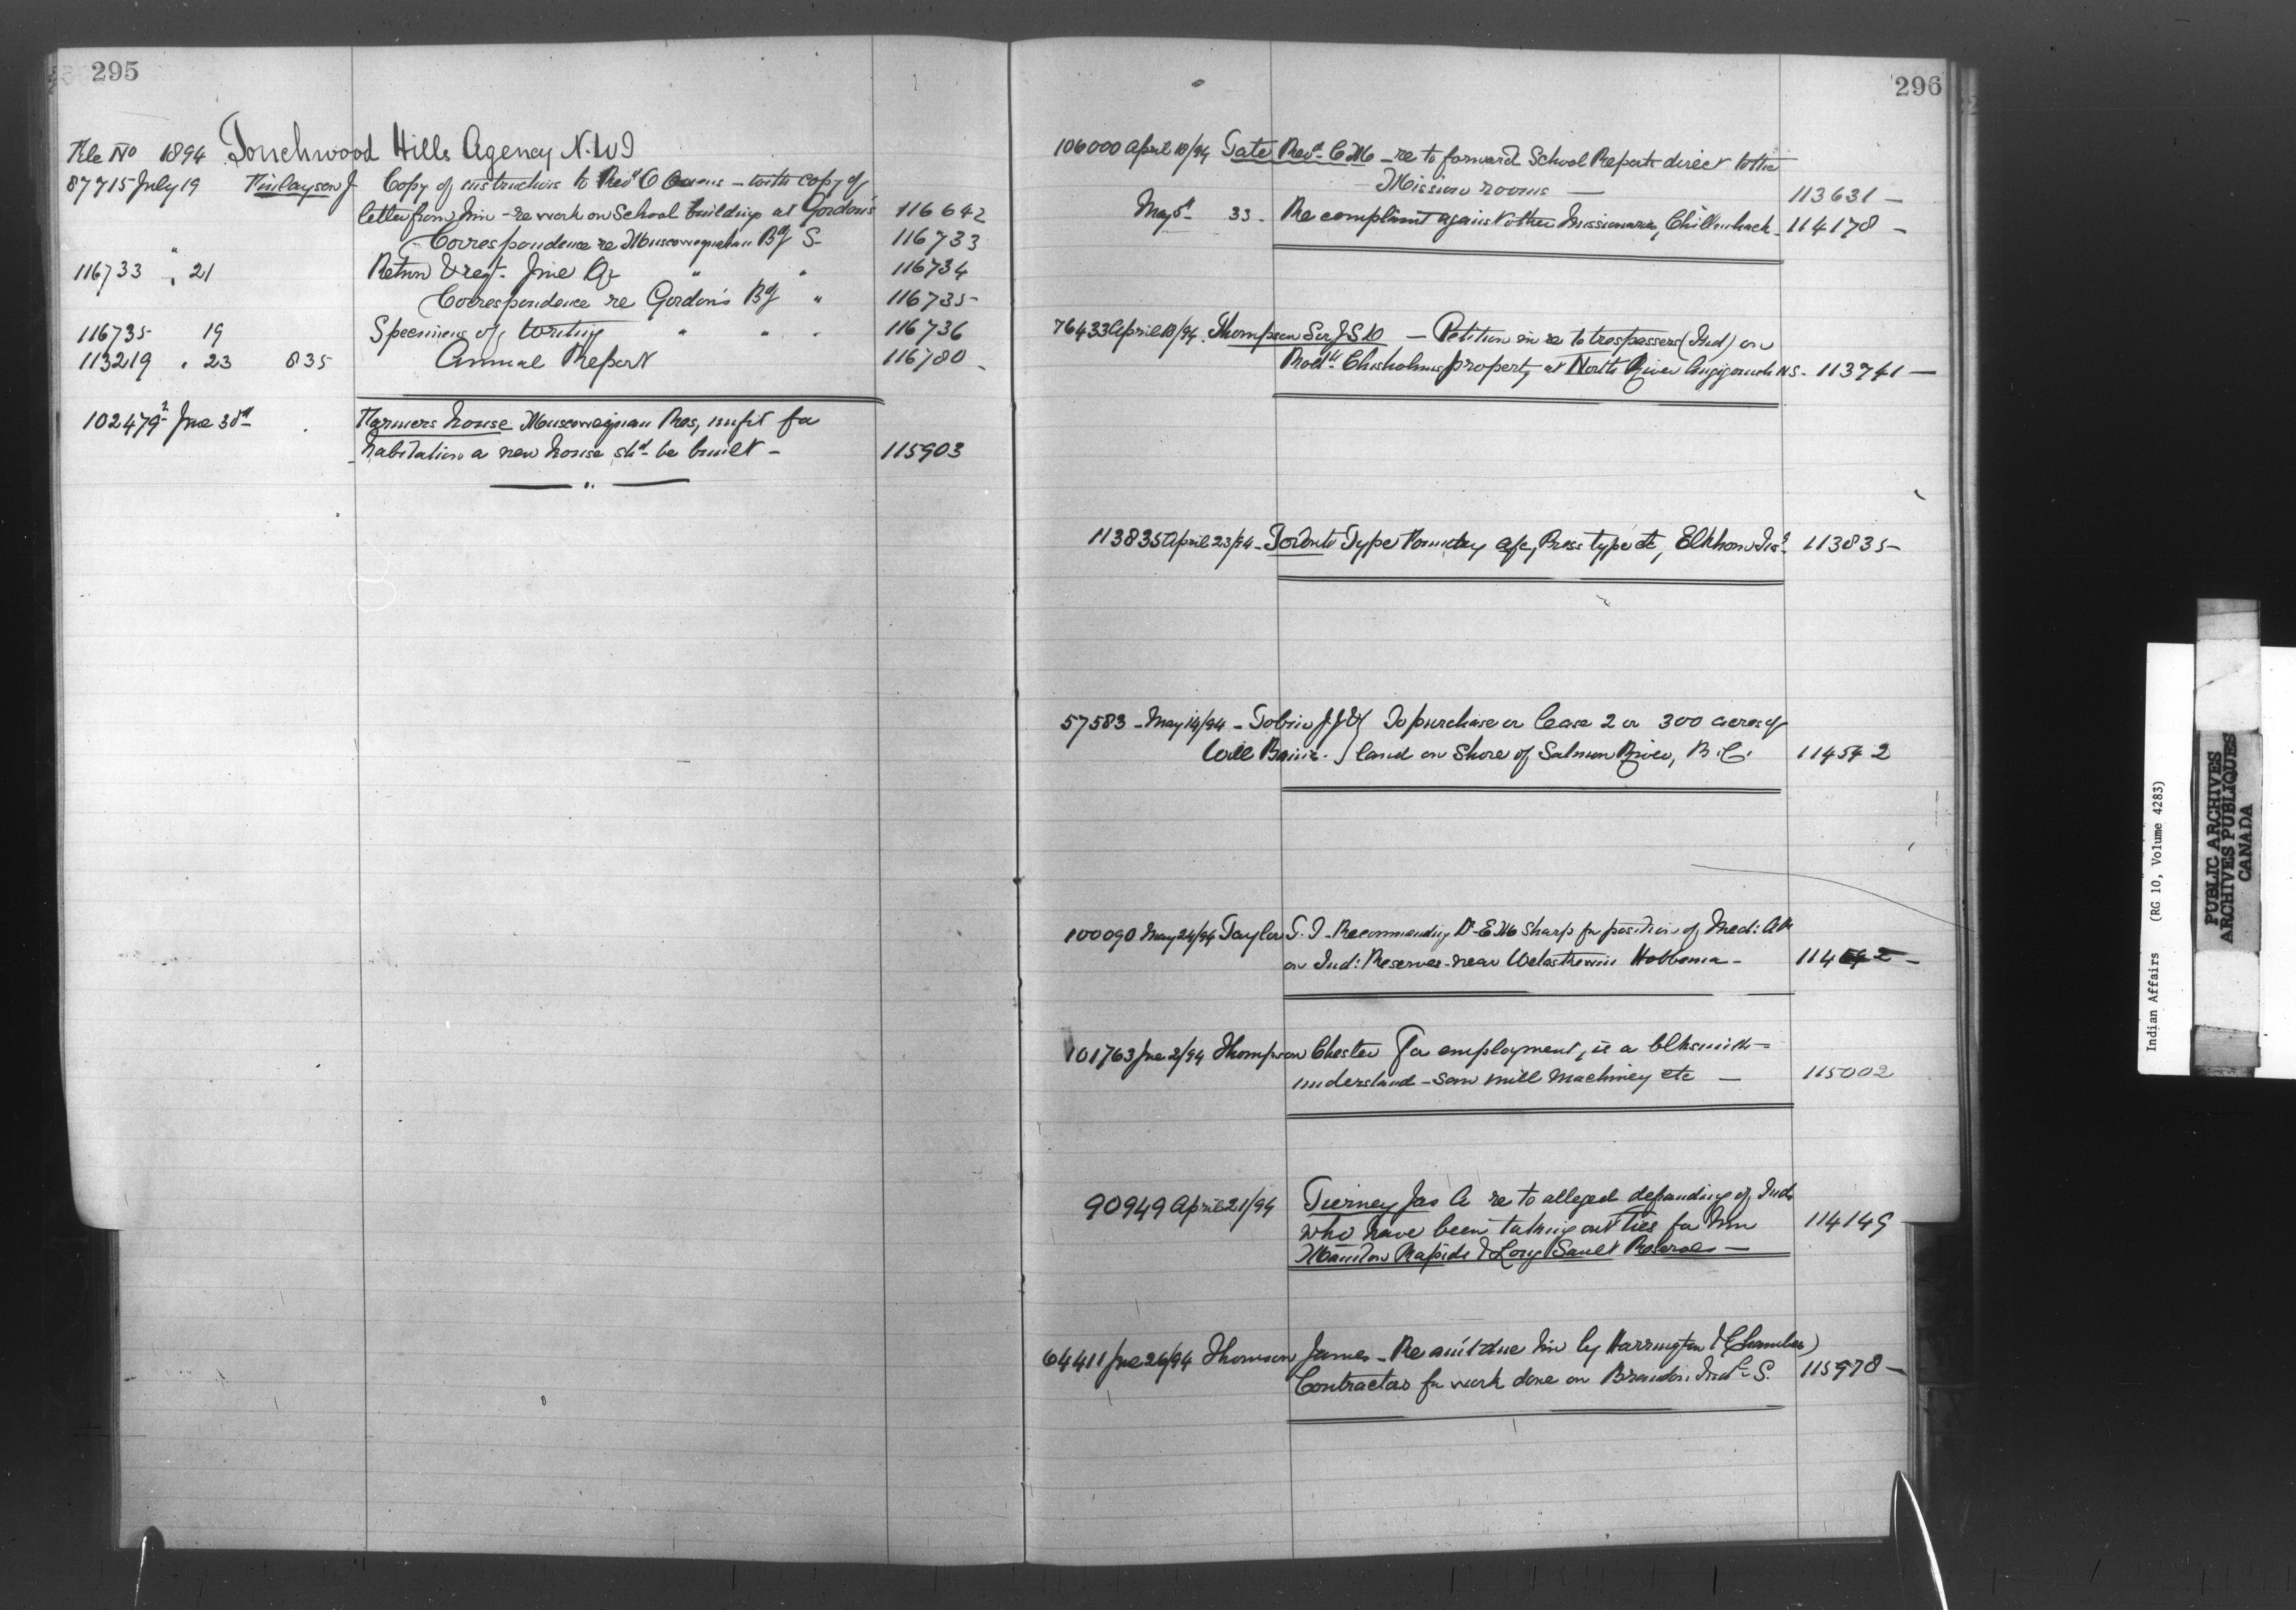 295
File No 1894 Touchwood Hills Agency N.W.T
87715 July 19 Finlayson J Copy of instructions to Revd O Owens - with copy of
letter from him - re work on School building at Gordon's 116642
" Correspondence re Muscowequahan Bdg S- 116733
116733 " 21 Return & regt. June Qr " " 116734
Correspondence re Gordon's Bdg " 116735
116735 19 Specimens of writing " " " 116736
113219 " 23 835 Annual Report 116780
102479² June 30th Farmers house Muscowequan Res, unfit for
habitation a new house shd be built - 115903
296
106000 April 18/94 Tate Revd C M - re to forward School Reports direct to the
Mission rooms - 113631 -
May 5th 33 - Re complaint against other missionaries, Chilliwhack - 114178 -
76433 April 18/94 Thompson Sir J S D - Petition in re to trespassers (Ind) on
Chisholms property at North River Antigonish NS - 113741 -
113835 April 23/94 - Toronto Type Foundry a/c, Press type etc, Elkhorn Inst 113835 -
57583 - May 14/94 - Tobin J J & } To purchase or lease 2 or 300 acres of
Will } land on Shore of Salmon River, B.C. 114542
100090 May 24/94 Taylor T. J - Recommending Dr E M Sharp for position of Med: Att
on Ind: Reserves near Wetaskiwin Hobbema -
101763 June 2/94 Thompson Chester For employment, is a blksmith -
understand - saw mill machinery etc - 115002
90949 April 21/94 Tierney Jas A re to alleged defrauding of Inds
who have been taking out Ties for him
Manitou Rapids & Long Sault Reserves - 114149
64411 June 26/94 Thomson James - Re amt due him by Harrington & Chambers
Contractors for work done on Brandon Indl S. 115978 -
Indian Affairs (RG 10, Volume 4283)
PUBLIC ARCHIVES
ARCHIVES PUBLIQUES
CANADA